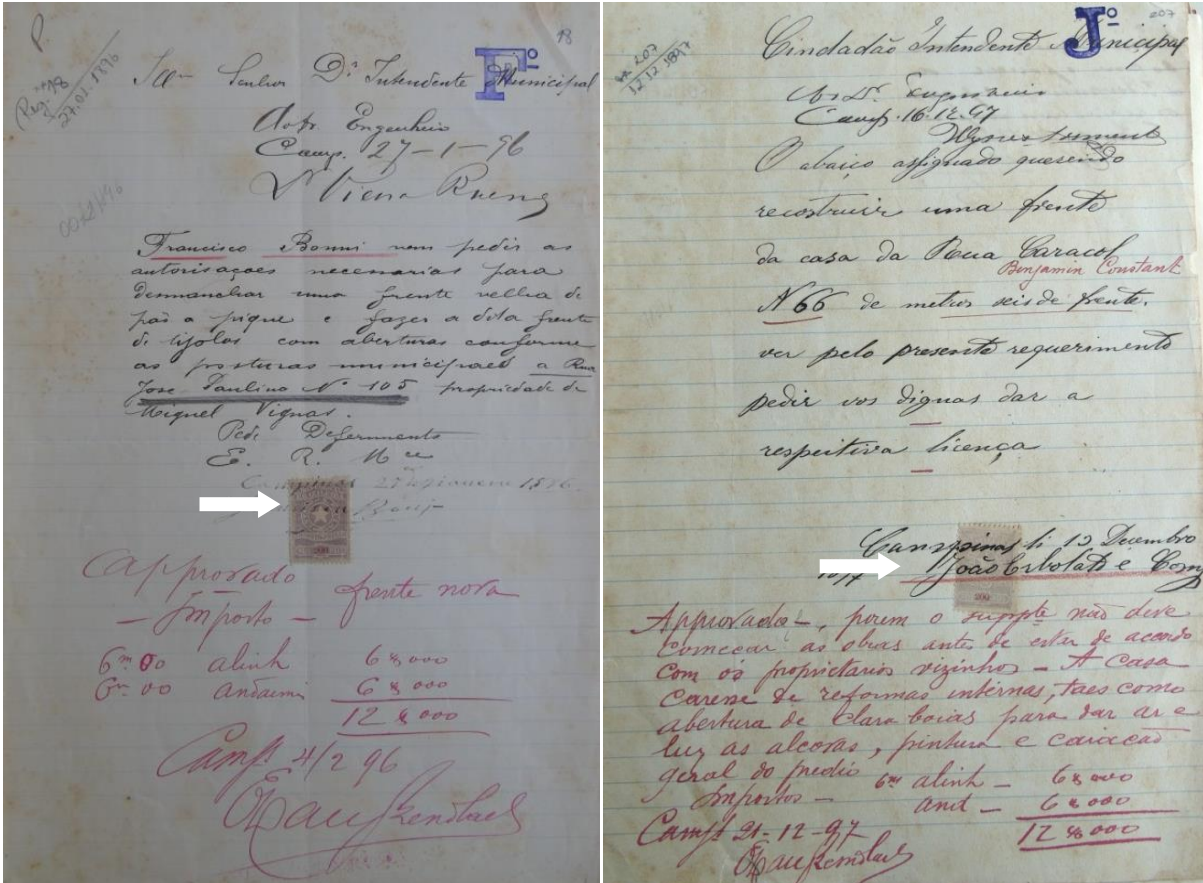 P.
Req. 98
27.01.1896
98
Fº
Illm Senhor Dr. Intendente Municipal
Engenheiro
Camp. 27-1-96
0012/96
Francisco Bonni vem pedir as
autorisaçoes necessarias para
desmanchar uma frente velha de
paõ a pique e fazer a dita frente
de tijolos com aberturas conforme
as posturas municipaes a Rua
José Paulino Nº 105 propriedade de
Miguel Vignas.
Pede Deferimento
E. R. Mce
Campinas 27 de janeiro 1896.
200
Approvado
frente nova
— Imposto —
6m 00 alinh 6$000
6m 00 andaime 6$000
12$000
Camps 4/2 96
207
Jº
12.12.1897
Cindadão Intendente Municipal
Ao Dr. Engenheiro
Camp. 16-12-97
O abaico assignado querendo
recostruir uma frente
da casa da Rua Caracol
Benjamin Constant
N66 de metros seis de frente.
ver pelo presente requerimento
pedir vos dignas dar a
respeitiva licença
Campinas li 12 Decembro
1897 João Erbolato e Comp
200
Approvado —, porem o suppte não deve
começar as obras antes de estar de acordo
com os proprietarios vizinhos — A casa
carece de reformas internas, taes como
abertura de clara boias para dar ar e
luz as alcovas, pintura e caiacao
geral do predio
6m alinh — 6$000
Impostos — and — 6$000
12$000
Camps 21-12-97